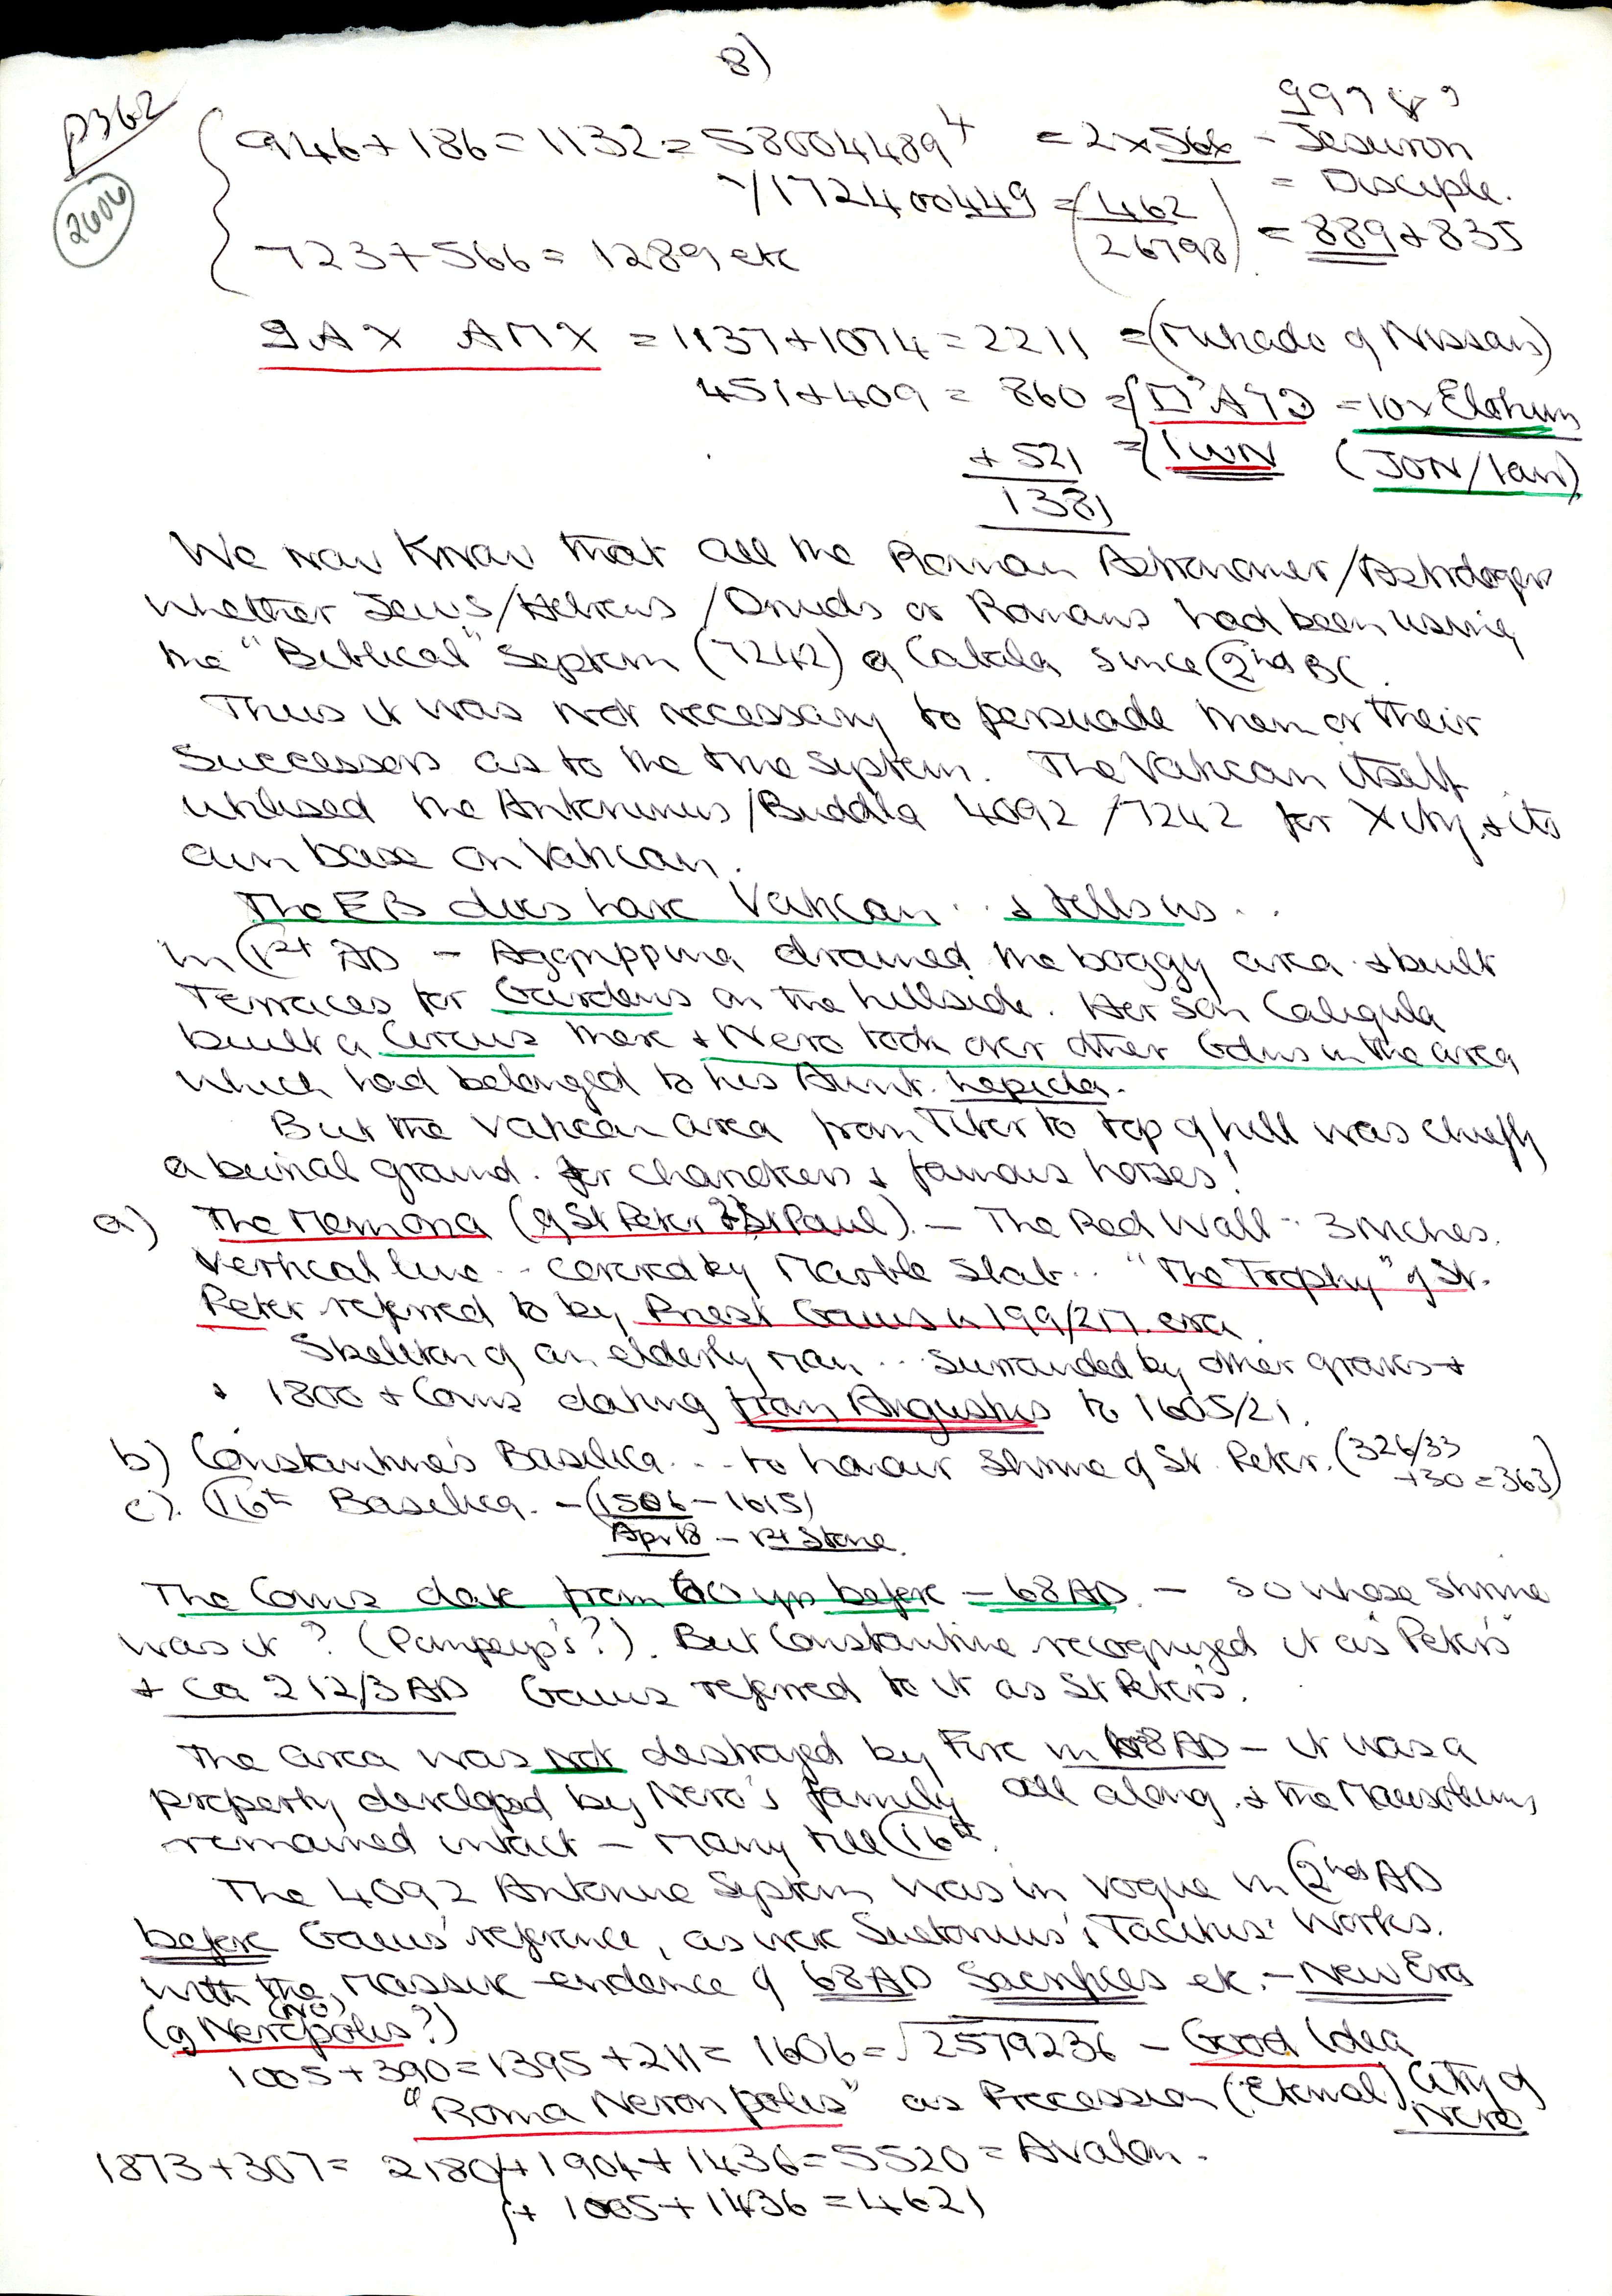 8)
P362
2606
946 + 186 = 1132 = 58004489⁴ = 2 x 566 = Jesuron
√172400449 = (462 / 26798) = Disciple.
= 889 + 835
723 + 566 = 1289 etc
= 1137 + 1074 = 2211 = (Mikado of Nissan)
451 + 409 = 860 = = 10 x Elohim
+ 521 = IWN (JON/Ian)
1381
We now know that all the Roman Astronomer/Astrologers
whether Jews/Hebrews/Druids or Romans had been using
the "Biblical" System (7242) of Cabala since (2nd BC.
Thus it was not necessary to persuade them or their
Successors as to the time system. The Vatican itself
utilised the Antoninus/Buddha 4092/7242 for Xity & its
own base on Vatican.
The EB does have Vatican .. & tells us ..
in (1st AD - Aggrippina drained the boggy area & built
Terraces for Gardens on the hillside. Her son Caligula
built a Circus there & Nero took over other Gdns in the area
which had belonged to his Aunt. Lepida.
But the Vatican area from Tiber to top of hill was chiefly
a burial ground. for charioteers & famous horses!
a) The Memoria (of St Peter & St Paul). - The Red Wall .. 3 inches.
Vertical line .. covered by Marble Slab .. "The Trophy" of St.
Peter referred to by Priest Gaius in 199/217. era.
Skeleton of an elderly man ... Surrounded by other graves +
+ 1800 + Coins dating from Augustus to 1605/21.
b) Constantine's Basilica ... to honour Shrine of St. Peter. (326/33
+30 = 363)
c). (16th Basilica. - (1506 - 1615)
Apr 18 - 1st Stone.
The Coins date from 60 yrs before - 68 AD. - so whose Shrine
was it? (Pompey's?). But Constantine recognized it as "Peter's"
+ Ca 212/3 AD Gaius referred to it as St Peter's.
The area was not destroyed by Fire in 68 AD - it was a
property developed by Nero's family all along. & the Mausoleums
remained intact - Many till (16th.
The 4092 Antonine System was in vogue in (2nd AD
before Gaius' reference, as were Suetonius' & Tacitus' Works.
with the Massive evidence of 68 AD Sacrifices etc. - New Era
(of Neropolis?)
(No)
1005 + 390 = 1395 + 211 = 1606 = √2579236 - Good Idea
"Roma Neronpolis" as Precession (Eternal) City of
Nero
1873 + 307 = 2180 + 1904 + 1436 = 5520 = Avalon.
(+ 1005 + 1436 = 4621